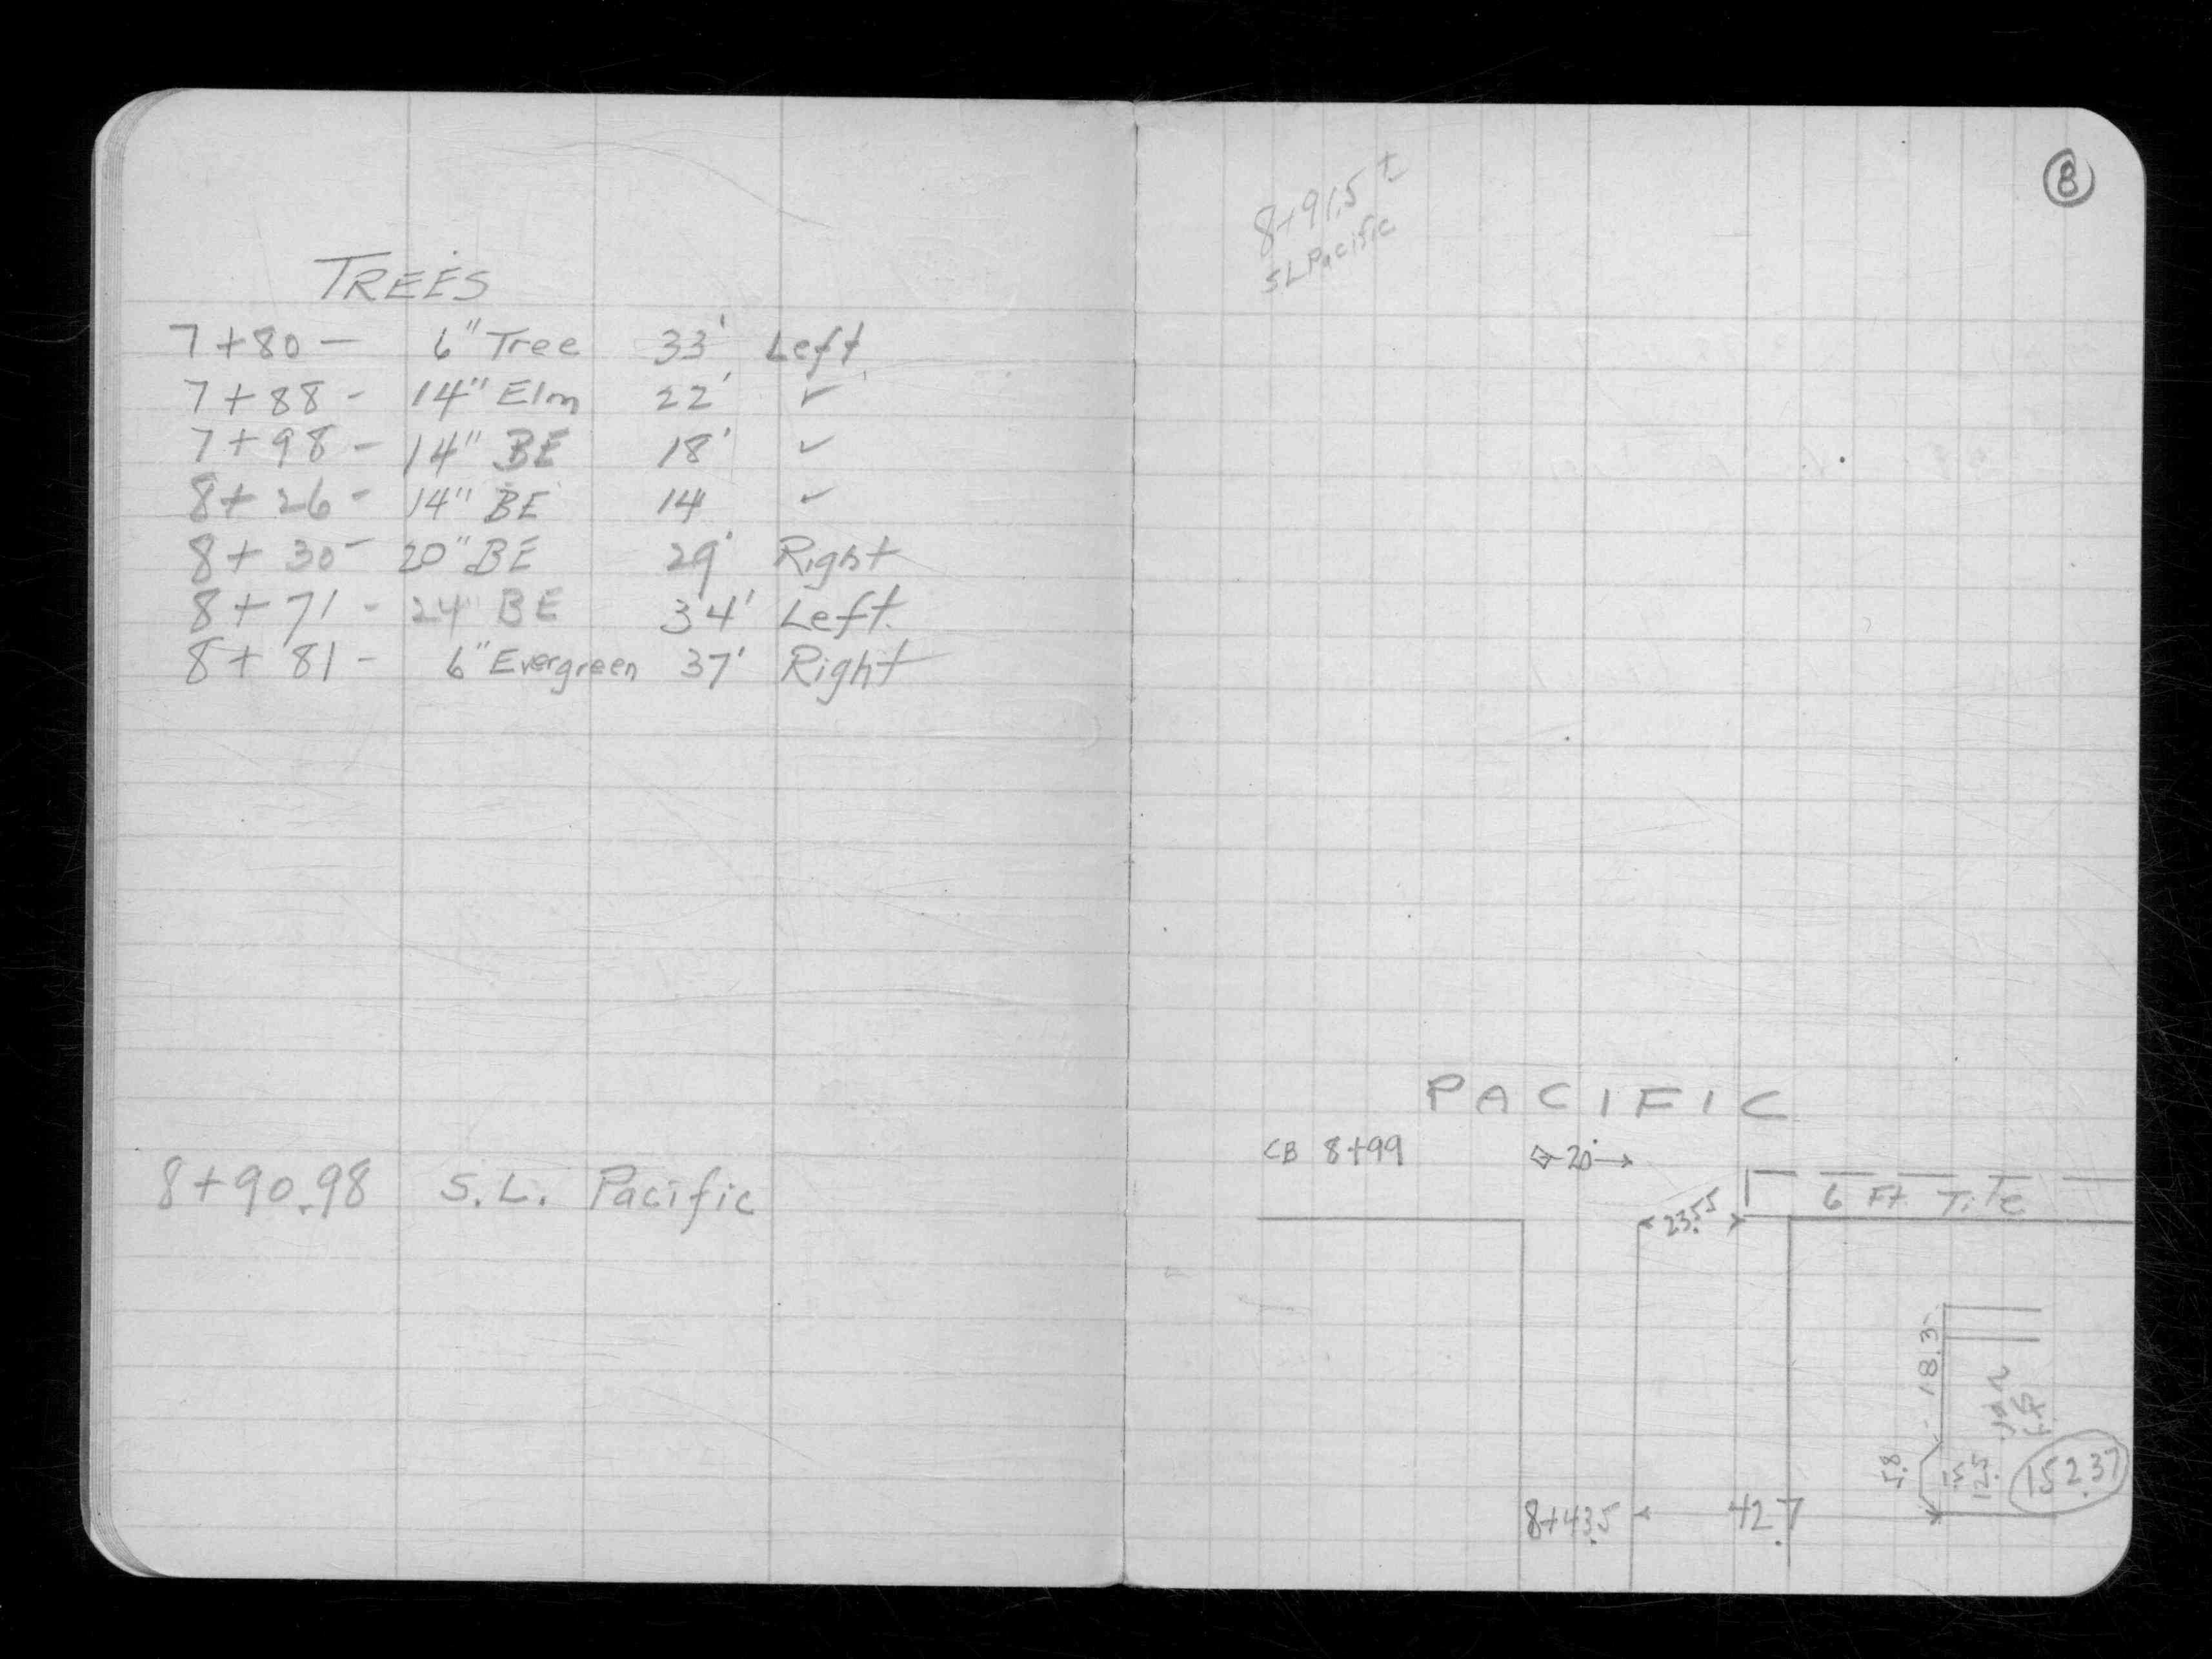 TREES
7+80 - 6" Tree 33' Left
7+88 - 14" Elm 22' ✓
7+98 - 14" BE 18' ✓
8+26 - 14" BE 14 ✓
8+30 - 20" BE 29' Right
8+71 - 24" BE 34' Left.
8+81 - 6" Evergreen 37' Right
8+90.98 S.L. Pacific
8
8+91.5 ±
SL Pacific
PACIFIC
CB 8+99
20'
6 Ft. Tile
23.55
18.3
5.8
12.5
152.37
8+43.5
42.7